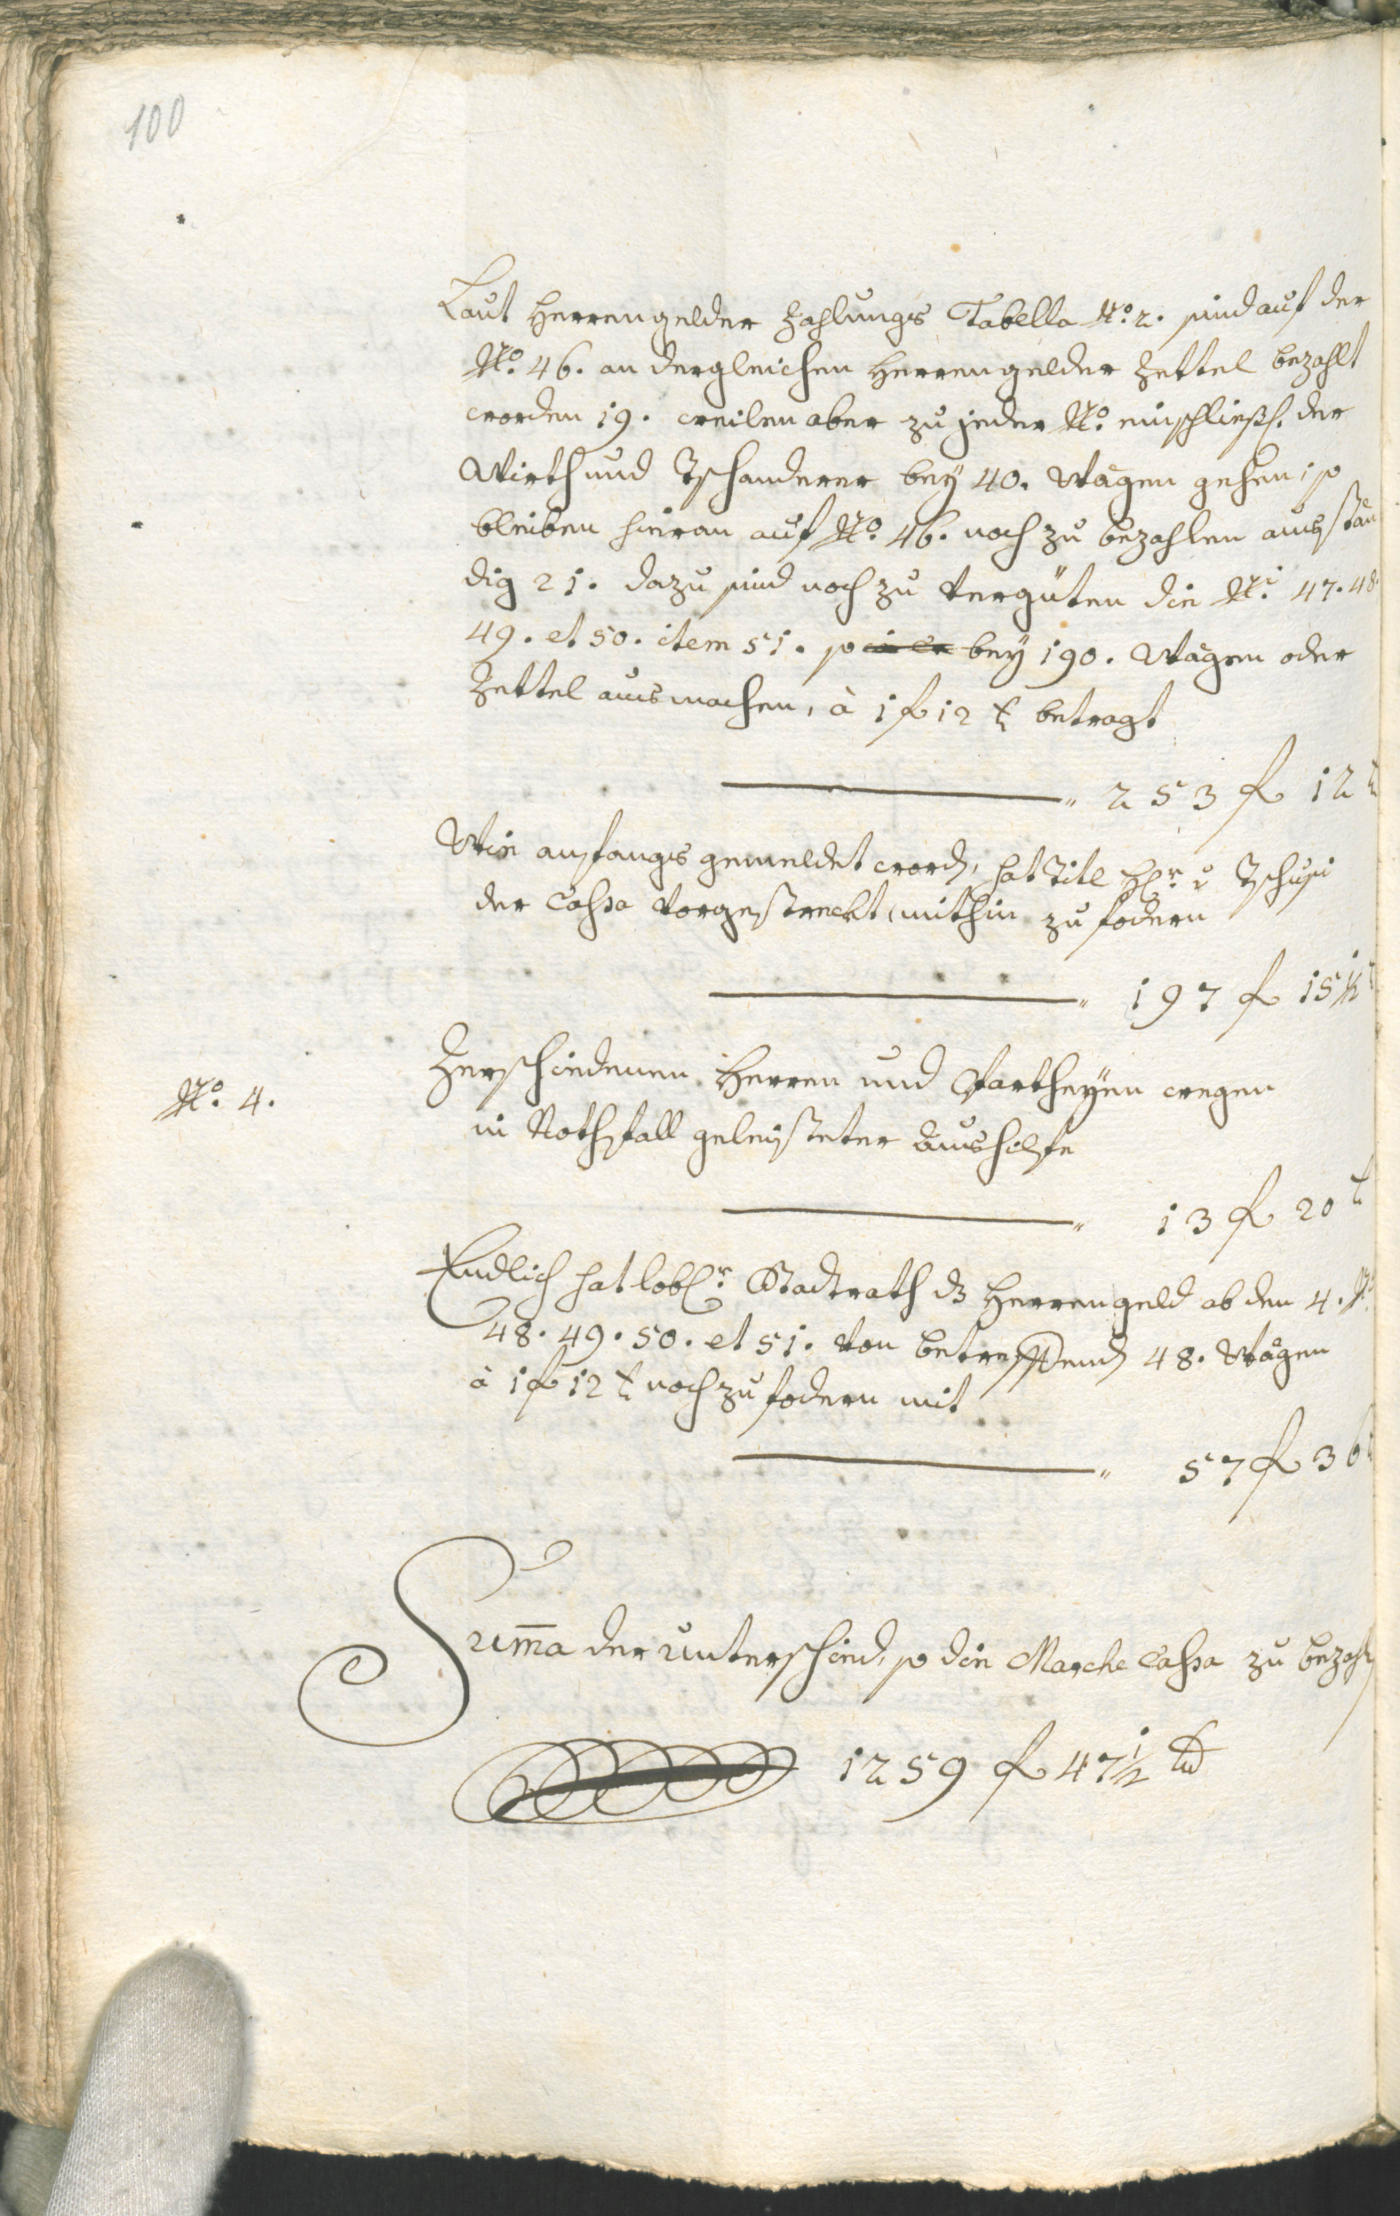 100
Laut Herrengelder Zahlungs Tabella No. 2. sind auf der
No. 46. an dergleichen Herrengelder Zettel bezahlt
worden 19. weilen aber zu jeder No. einschließl. der
Wirth und Tschanderer bey 40. Wägen gehen, so
bleiben hieran auf No. 46. noch zu bezahlen ausstän
dig 21. dazu sind noch zu vergüten die Ni. 47. 48.
49. et 50. item 51. so bey 190. Wägen oder
Zettel ausmachen, à 1 f 12 x betragt
253 f 12 x
Wie anfangs gemeldet word, hat Titl Hr. v Tschusi
der Cassa vorgestreckt, mithin zu fodern
197 f 15 1/2
No. 4.
Zerschiedenen Herren und Partheyen wegen
in Nothfall geleisteter Aushilfe
13 f 20 x
Endlich hat lobl.r Stadtrath dz Herrengeld ab den 4. No
48. 49. 50. et 51. von betreffend 48. Wägen
à 1 f 12 x noch zu fodern mit
57 f 36
Suma der Unterschied, so die Marche Cassa zu bezahl
1259 f 47 1/2 x